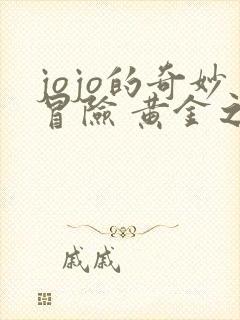 jojo的奇妙
冒險 黄金之
戚戚